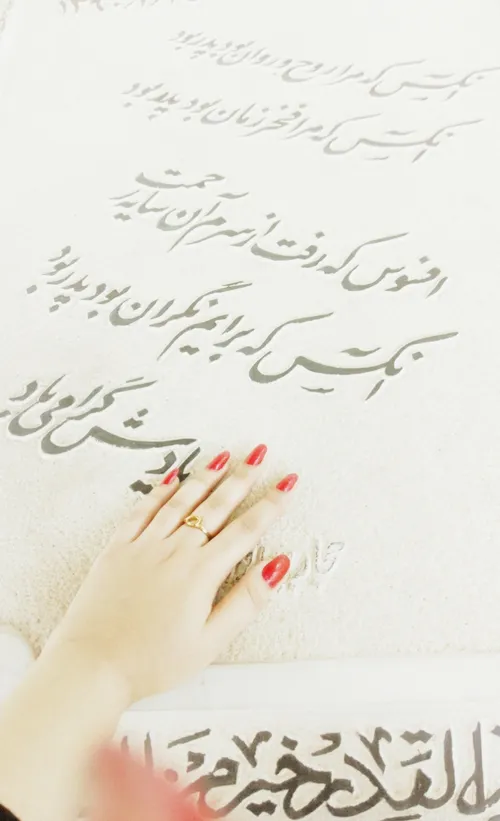 آنکس که مرا روح و روان بود پدر بود
آنکس که مرا فخر زمان بود پدر بود
افسوس که رفت از سرم آن سایه رحمت
آنکس که برایم نگران بود پدر بود
یادش گرامی باد
القدر خیر من